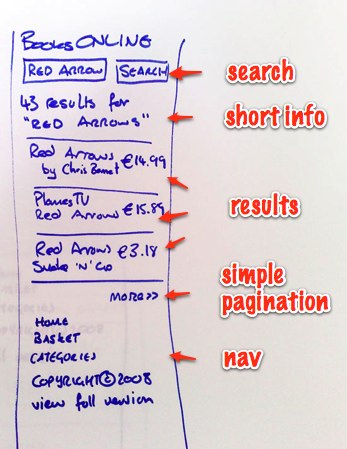 Books ONLINE
RED ARROW SEARCH
search
43 results for
"RED ARROWS"
short info
Red Arrows €14.99
by Chris Bennet
PlanesTV
Red Arrows €15.89
results
Red Arrows €3.18
Snake 'N' Go
MORE>>
simple
pagination
Home
BASKET
CATEGORIES
nav
COPYRIGHT©2008
view full version